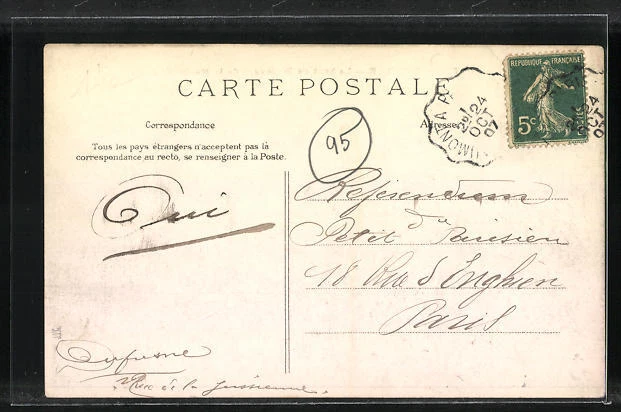 CARTE POSTALE
RÉPUBLIQUE FRANÇAISE
5c
Correspondance
Adresse
95
Tous les pays étrangers n'acceptent pas là
correspondance au recto, se renseigner à la Poste.
24
OCT
07
Oui
Référendum
du
Petit Parisien
18 Rue d'Enghien
Paris
Dufresne
Rue de la Jussienne